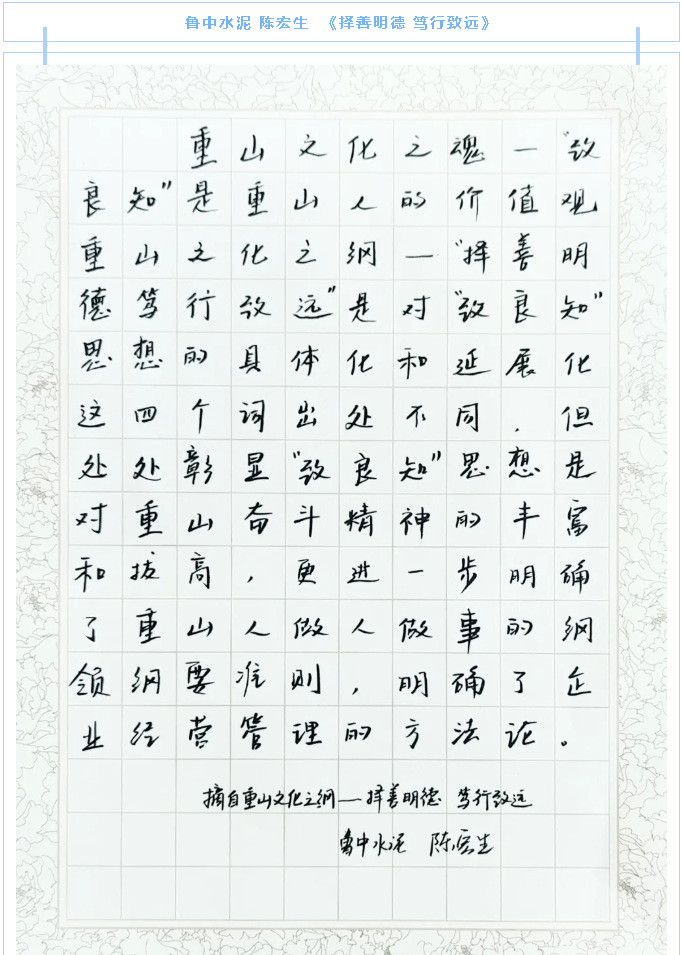 鲁中水泥 陈宏生 《择善明德 笃行致远》
重山文化之魂一“致
良知”是重山人的价值观
重山文化之纲一“择善明
德笃行致远”是对“致良知”
思想的具体化和延展化
这四个词出处不同，但
处处彰显“致良知”思想是
对重山奋斗精神的丰富
和拔高，更进一步明确
了重山人做人做事的纲
领纲要准则，明确了企
业经营管理的方法论。
摘自重山文化之纲—择善明德 笃行致远
鲁中水泥 陈宏生